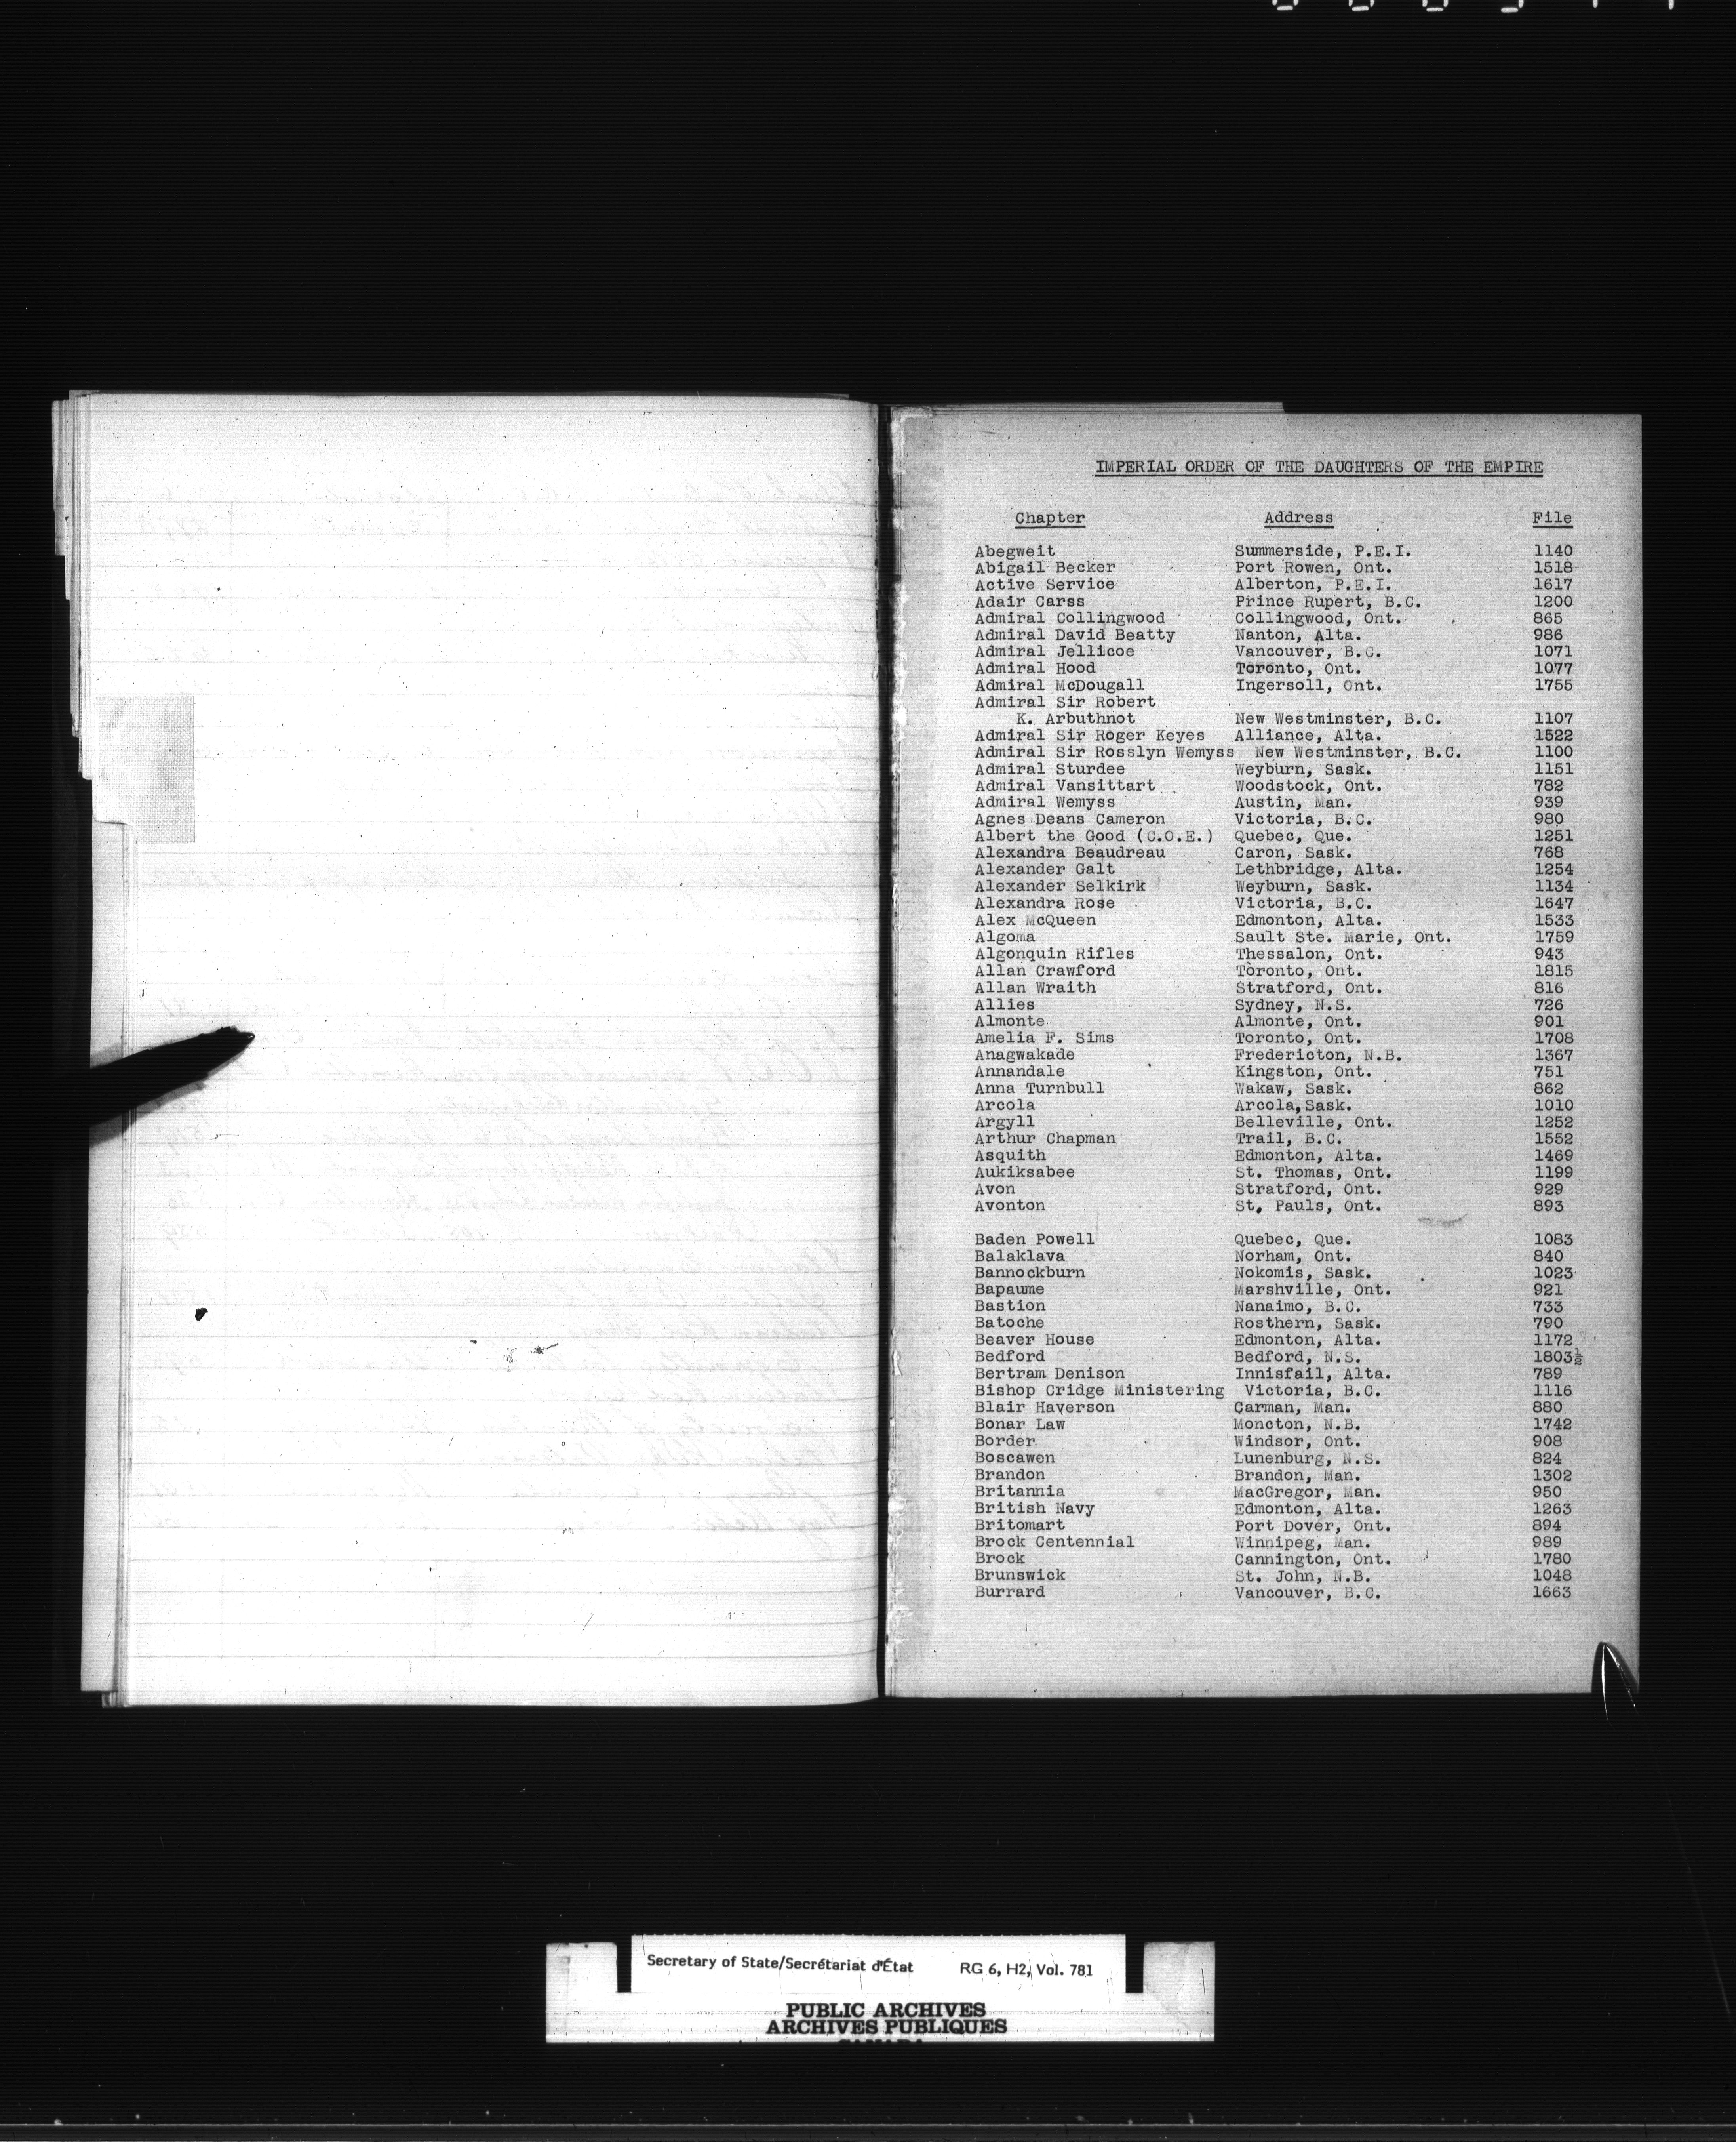 IMPERIAL ORDER OF THE DAUGHTERS OF THE EMPIRE
Chapter Address File
Abegweit Summerside, P.E.I. 1140
Abigail Becker Port Rowen, Ont. 1518
Active Service Alberton, P.E.I. 1617
Adair Carss Prince Rupert, B.C. 1200
Admiral Collingwood Collingwood, Ont. 865
Admiral David Beatty Nanton, Alta. 986
Admiral Jellicoe Vancouver, B.C. 1071
Admiral Hood Toronto, Ont. 1077
Admiral McDougall Ingersoll, Ont. 1755
Admiral Sir Robert
K. Arbuthnot New Westminster, B.C. 1107
Admiral Sir Roger Keyes Alliance, Alta. 1522
Admiral Sir Rosslyn Wemyss New Westminster, B.C. 1100
Admiral Sturdee Weyburn, Sask. 1151
Admiral Vansittart Woodstock, Ont. 782
Admiral Wemyss Austin, Man. 939
Agnes Deans Cameron Victoria, B.C. 980
Albert the Good (C.O.E.) Quebec, Que. 1251
Alexandra Beaudreau Caron, Sask. 768
Alexander Galt Lethbridge, Alta. 1254
Alexander Selkirk Weyburn, Sask. 1134
Alexandra Rose Victoria, B.C. 1647
Alex McQueen Edmonton, Alta. 1533
Algoma Sault Ste. Marie, Ont. 1759
Algonquin Rifles Thessalon, Ont. 943
Allan Crawford Toronto, Ont. 1815
Allan Wraith Stratford, Ont. 816
Allies Sydney, N.S. 726
Almonte Almonte, Ont. 901
Amelia F. Sims Toronto, Ont. 1708
Anagwakade Fredericton, N.B. 1367
Annandale Kingston, Ont. 751
Anna Turnbull Wakaw, Sask. 862
Arcola Arcola, Sask. 1010
Argyll Belleville, Ont. 1252
Arthur Chapman Trail, B.C. 1552
Asquith Edmonton, Alta. 1469
Aukiksabee St. Thomas, Ont. 1199
Avon Stratford, Ont. 929
Avonton St. Pauls, Ont. 893
Baden Powell Quebec, Que. 1083
Balaklava Norham, Ont. 840
Bannockburn Nokomis, Sask. 1023
Bapaume Marshville, Ont. 921
Bastion Nanaimo, B.C. 733
Batoche Rosthern, Sask. 790
Beaver House Edmonton, Alta. 1172
Bedford Bedford, N.S. 1803½
Bertram Denison Innisfail, Alta. 789
Bishop Cridge Ministering Victoria, B.C. 1116
Blair Haverson Carman, Man. 880
Bonar Law Moncton, N.B. 1742
Border Windsor, Ont. 908
Boscawen Lunenburg, N.S. 824
Brandon Brandon, Man. 1302
Britannia MacGregor, Man. 950
British Navy Edmonton, Alta. 1263
Britomart Port Dover, Ont. 894
Brock Centennial Winnipeg, Man. 989
Brock Cannington, Ont. 1780
Brunswick St. John, N.B. 1048
Burrard Vancouver, B.C. 1663
Secretary of State/Secrétariat d'État RG 6, H2, Vol. 781
PUBLIC ARCHIVES
ARCHIVES PUBLIQUES